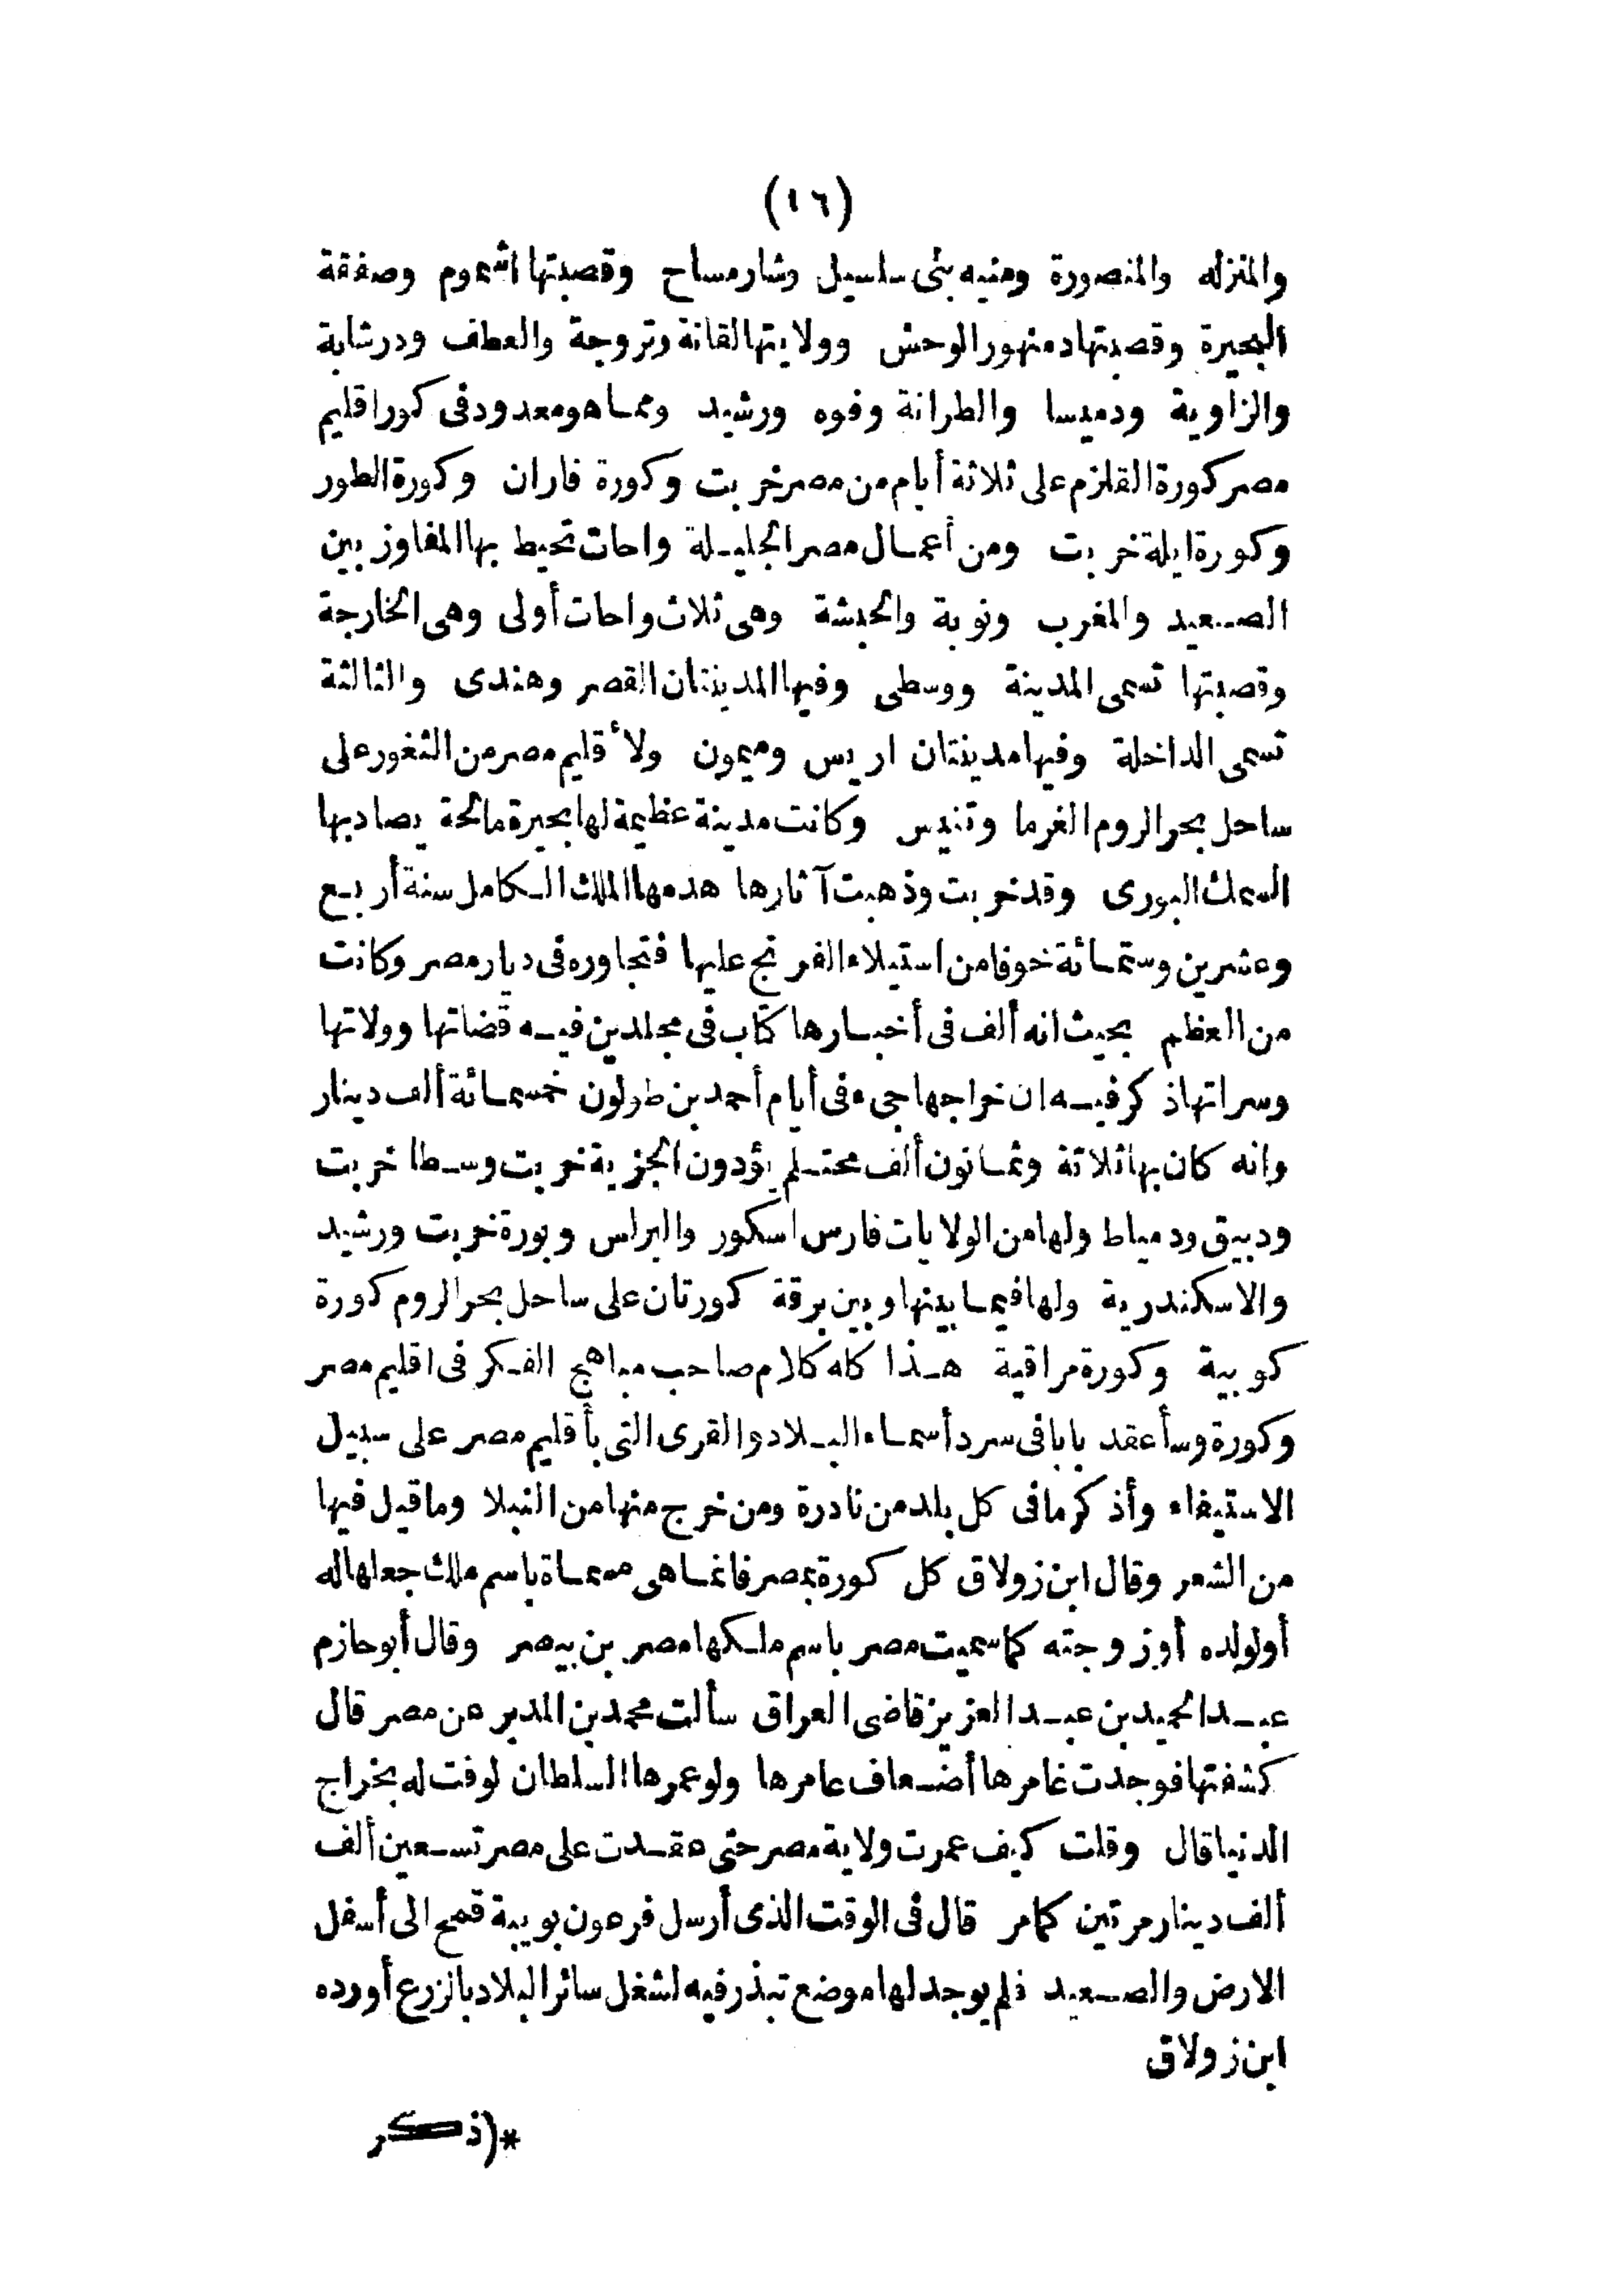 (١٦)
والمنزله والمنصورة ومنيه بنى سلسيل وشارمساح وقصبتها اشموم وصفقة
البحيرة وقصبتها دمنهور الوحش وولايتها لقانة وتروجة والعطف ودرشابة
والزاوية ودميسا والطرانة وفوه ورشيد ومما هو معدود فى كور اقليم
مصر كورة القلزم على ثلاثة أيام من مصر خربت وكورة فاران وكورة الطور
وكورة ايلة خربت ومن أعمال مصر الجليلة واحات تحيط بها المفاوز بين
الصعيد والمغرب ونوبة والحبشة وهى ثلاث واحات أولى وهى الخارجة
وقصبتها تسمى المدينة ووسطى وفيها المدينتان القصر وهندى والثالثة
تسمى الداخلة وفيها مدينتان اريس وميمون ولأقليم مصر من الثغور على
ساحل بحر الروم الغرما وتنيس وكانت مدينة عظيمة لها بحيرة مالحة يصاد بها
السمك البورى وقد خربت وذهبت آثارها هدمها الملك الكامل سنة أربع
وعشرين وستمائة خوفا من استيلاء الفرنج عليها فتجاوره فى ديار مصر وكانت
من العظم بحيث انه ألف فى أخبارها كتاب فى مجلدين فيه قضاتها وولاتها
وسراتها ذكر فيه ان خراجها جىء فى أيام أحمد بن طولون خمسمائة ألف دينار
وانه كان بها ثلاثة وثمانون ألف محتلم يؤدون الجزية خربت وسطا خربت
ودبيق ودمياط ولها من الولايات فارس اسكور والبرلس وبورة خربت ورشيد
والاسكندرية ولها فيما بينها وبين برقة كورتان على ساحل بحر الروم كورة
كوبية وكورة مراقية هذا كله كلام صاحب مباهج الفكر فى اقليم مصر
وكورة وسأعقد بابا فى سرد أسماء البلاد والقرى التى بأقليم مصر على سبيل
الاستيفاء وأذكر ما فى كل بلد من نادرة ومن خرج منها من النبلا وما قيل فيها
من الشعر وقال ابن زولاق كل كورة بمصر فانما هى مسماة باسم ملك جعلها له
أو لولده أو زوجته كما سميت مصر باسم ملكها مصر بن بيصر وقال أبو حازم
عبد الحميد بن عبد العزيز قاضى العراق سألت محمد بن المدبر عن مصر قال
كشفتها فوجدت غامرها أضعاف عامرها ولو عمرها السلطان لوفت له بخراج
الدنيا قال وقلت كيف عمرت ولاية مصر حتى عقدت على مصر تسعين ألف
ألف دينار مرتين كما مر قال فى الوقت الذى أرسل فرعون بويبة قمح الى أسفل
الارض والصعيد فلم يوجد لها موضع تبذر فيه لشغل سائر البلاد بالزرع أورده
ابن زولاق
*(ذكر